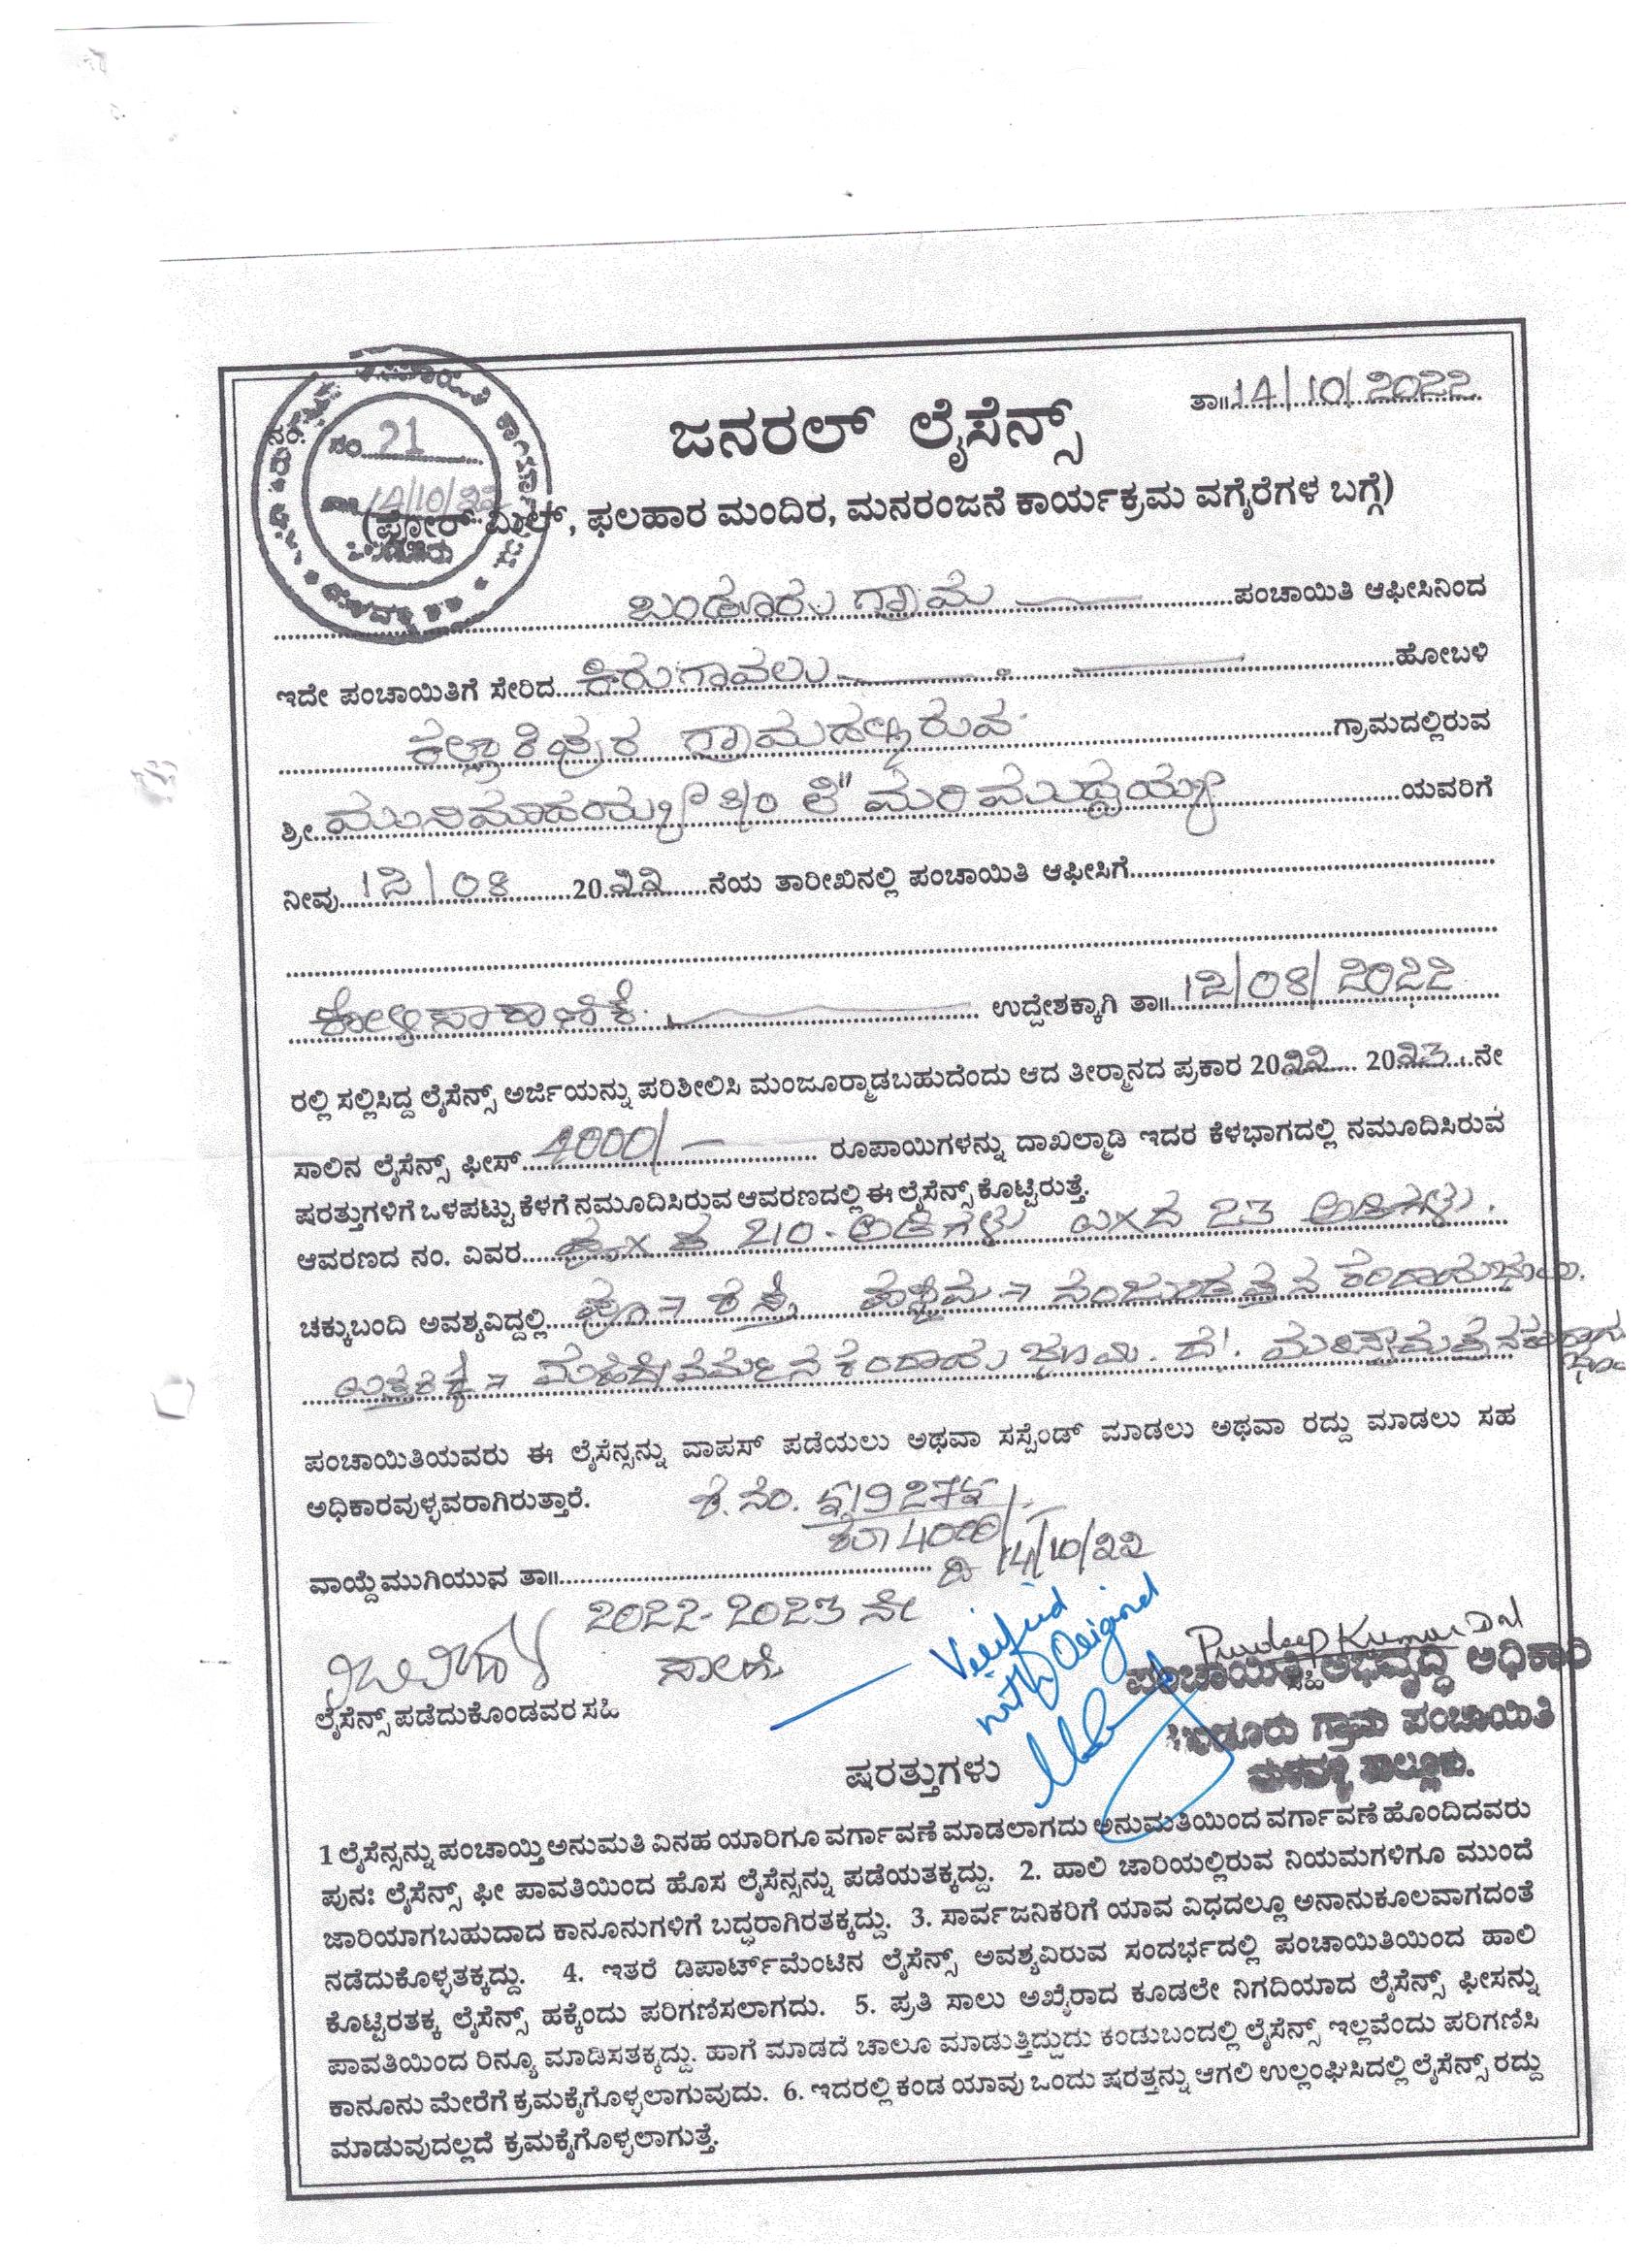 ತಾ॥ 14/10/2022
ಜನರಲ್ ಲೈಸೆನ್ಸ್
ನಂ. 21
14/10/22
(ಫ್ಲೋರ್ ಮಿಲ್, ಫಲಹಾರ ಮಂದಿರ, ಮನರಂಜನೆ ಕಾರ್ಯಕ್ರಮ ವಗೈರೆಗಳ ಬಗ್ಗೆ)
ಬಂಡೂರು ಗ್ರಾಮ ಪಂಚಾಯಿತಿ ಆಫೀಸಿನಿಂದ
ಇದೇ ಪಂಚಾಯಿತಿಗೆ ಸೇರಿದ ಕಿರುಗಾವಲು ಹೋಬಳಿ
ಗ್ರಾಮದಲ್ಲಿರುವ ಗ್ರಾಮದಲ್ಲಿರುವ
ಶ್ರೀ ಯವರಿಗೆ
ನೀವು 12/08 2022 ನೆಯ ತಾರೀಖಿನಲ್ಲಿ ಪಂಚಾಯಿತಿ ಆಫೀಸಿಗೆ
ಕೋಳಿ ಸಾಕಾಣಿಕೆ ಉದ್ದೇಶಕ್ಕಾಗಿ ತಾ॥ 12/08/2022
ರಲ್ಲಿ ಸಲ್ಲಿಸಿದ್ದ ಲೈಸೆನ್ಸ್ ಅರ್ಜಿಯನ್ನು ಪರಿಶೀಲಿಸಿ ಮಂಜೂರ್‍ಮಾಡಬಹುದೆಂದು ಆದ ತೀರ್‍ಮಾನದ ಪ್ರಕಾರ 2022 2023 ನೇ
ಸಾಲಿನ ಲೈಸೆನ್ಸ್ ಫೀಸ್ 4000/- ರೂಪಾಯಿಗಳನ್ನು ದಾಖಲ್ಮಾಡಿ ಇದರ ಕೆಳಭಾಗದಲ್ಲಿ ನಮೂದಿಸಿರುವ
ಷರತ್ತುಗಳಿಗೆ ಒಳಪಟ್ಟು ಕೆಳಗೆ ನಮೂದಿಸಿರುವ ಆವರಣದಲ್ಲಿ ಈ ಲೈಸೆನ್ಸ್ ಕೊಟ್ಟಿರುತ್ತೆ.
ಆವರಣದ ನಂ. ವಿವರ 210 ಅಡಿಗಳು 23 ಅಡಿಗಳು.
ಚಕ್ಕುಬಂದಿ ಅವಶ್ಯವಿದ್ದಲ್ಲಿ
ಪಂಚಾಯಿತಿಯವರು ಈ ಲೈಸೆನ್ಸನ್ನು ವಾಪಸ್ ಪಡೆಯಲು ಅಥವಾ ಸಸ್ಪೆಂಡ್ ಮಾಡಲು ಅಥವಾ ರದ್ದು ಮಾಡಲು ಸಹ
ಅಧಿಕಾರವುಳ್ಳವರಾಗಿರುತ್ತಾರೆ.
4000/-
ವಾಯ್ದೆಮುಗಿಯುವ ತಾ॥ ದಿ 14/10/22
2022-2023 ನೇ
ಸಾಲಿಗೆ
Verified
with Original
Pradeep Kumar D N
ಪಂಚಾಯಿತಿ ಅಭಿವೃದ್ಧಿ ಅಧಿಕಾರಿ
ಬಂಡೂರು ಗ್ರಾಮ ಪಂಚಾಯಿತಿ
ಮಳವಳ್ಳಿ ತಾಲ್ಲೂಕು.
ಲೈಸೆನ್ಸ್ ಪಡೆದುಕೊಂಡವರ ಸಹಿ
ಷರತ್ತುಗಳು
1 ಲೈಸೆನ್ಸನ್ನು ಪಂಚಾಯ್ತಿ ಅನುಮತಿ ವಿನಹ ಯಾರಿಗೂ ವರ್ಗಾವಣೆ ಮಾಡಲಾಗದು ಅನುಮತಿಯಿಂದ ವರ್ಗಾವಣೆ ಹೊಂದಿದವರು
ಪುನಃ ಲೈಸೆನ್ಸ್ ಫೀ ಪಾವತಿಯಿಂದ ಹೊಸ ಲೈಸೆನ್ಸನ್ನು ಪಡೆಯತಕ್ಕದ್ದು. 2. ಹಾಲಿ ಜಾರಿಯಲ್ಲಿರುವ ನಿಯಮಗಳಿಗೂ ಮುಂದೆ
ಜಾರಿಯಾಗಬಹುದಾದ ಕಾನೂನುಗಳಿಗೆ ಬದ್ಧರಾಗಿರತಕ್ಕದ್ದು. 3. ಸಾರ್ವಜನಿಕರಿಗೆ ಯಾವ ವಿಧದಲ್ಲೂ ಅನಾನುಕೂಲವಾಗದಂತೆ
ನಡೆದುಕೊಳ್ಳತಕ್ಕದ್ದು. 4. ಇತರೆ ಡಿಪಾರ್ಟ್‌ಮೆಂಟಿನ ಲೈಸೆನ್ಸ್ ಅವಶ್ಯವಿರುವ ಸಂದರ್ಭದಲ್ಲಿ ಪಂಚಾಯಿತಿಯಿಂದ ಹಾಲಿ
ಕೊಟ್ಟಿರತಕ್ಕ ಲೈಸೆನ್ಸ್ ಹಕ್ಕೆಂದು ಪರಿಗಣಿಸಲಾಗದು. 5. ಪ್ರತಿ ಸಾಲು ಅಖೈರಾದ ಕೂಡಲೇ ನಿಗದಿಯಾದ ಲೈಸೆನ್ಸ್ ಫೀಸನ್ನು
ಪಾವತಿಯಿಂದ ರಿನ್ಯೂ ಮಾಡಿಸತಕ್ಕದ್ದು. ಹಾಗೆ ಮಾಡದೆ ಚಾಲೂ ಮಾಡುತ್ತಿದ್ದುದು ಕಂಡುಬಂದಲ್ಲಿ ಲೈಸೆನ್ಸ್ ಇಲ್ಲವೆಂದು ಪರಿಗಣಿಸಿ
ಕಾನೂನು ಮೇರೆಗೆ ಕ್ರಮಕೈಗೊಳ್ಳಲಾಗುವುದು. 6. ಇದರಲ್ಲಿ ಕಂಡ ಯಾವು ಒಂದು ಷರತ್ತನ್ನು ಆಗಲಿ ಉಲ್ಲಂಘಿಸಿದಲ್ಲಿ ಲೈಸೆನ್ಸ್ ರದ್ದು
ಮಾಡುವುದಲ್ಲದೆ ಕ್ರಮಕೈಗೊಳ್ಳಲಾಗುತ್ತೆ.